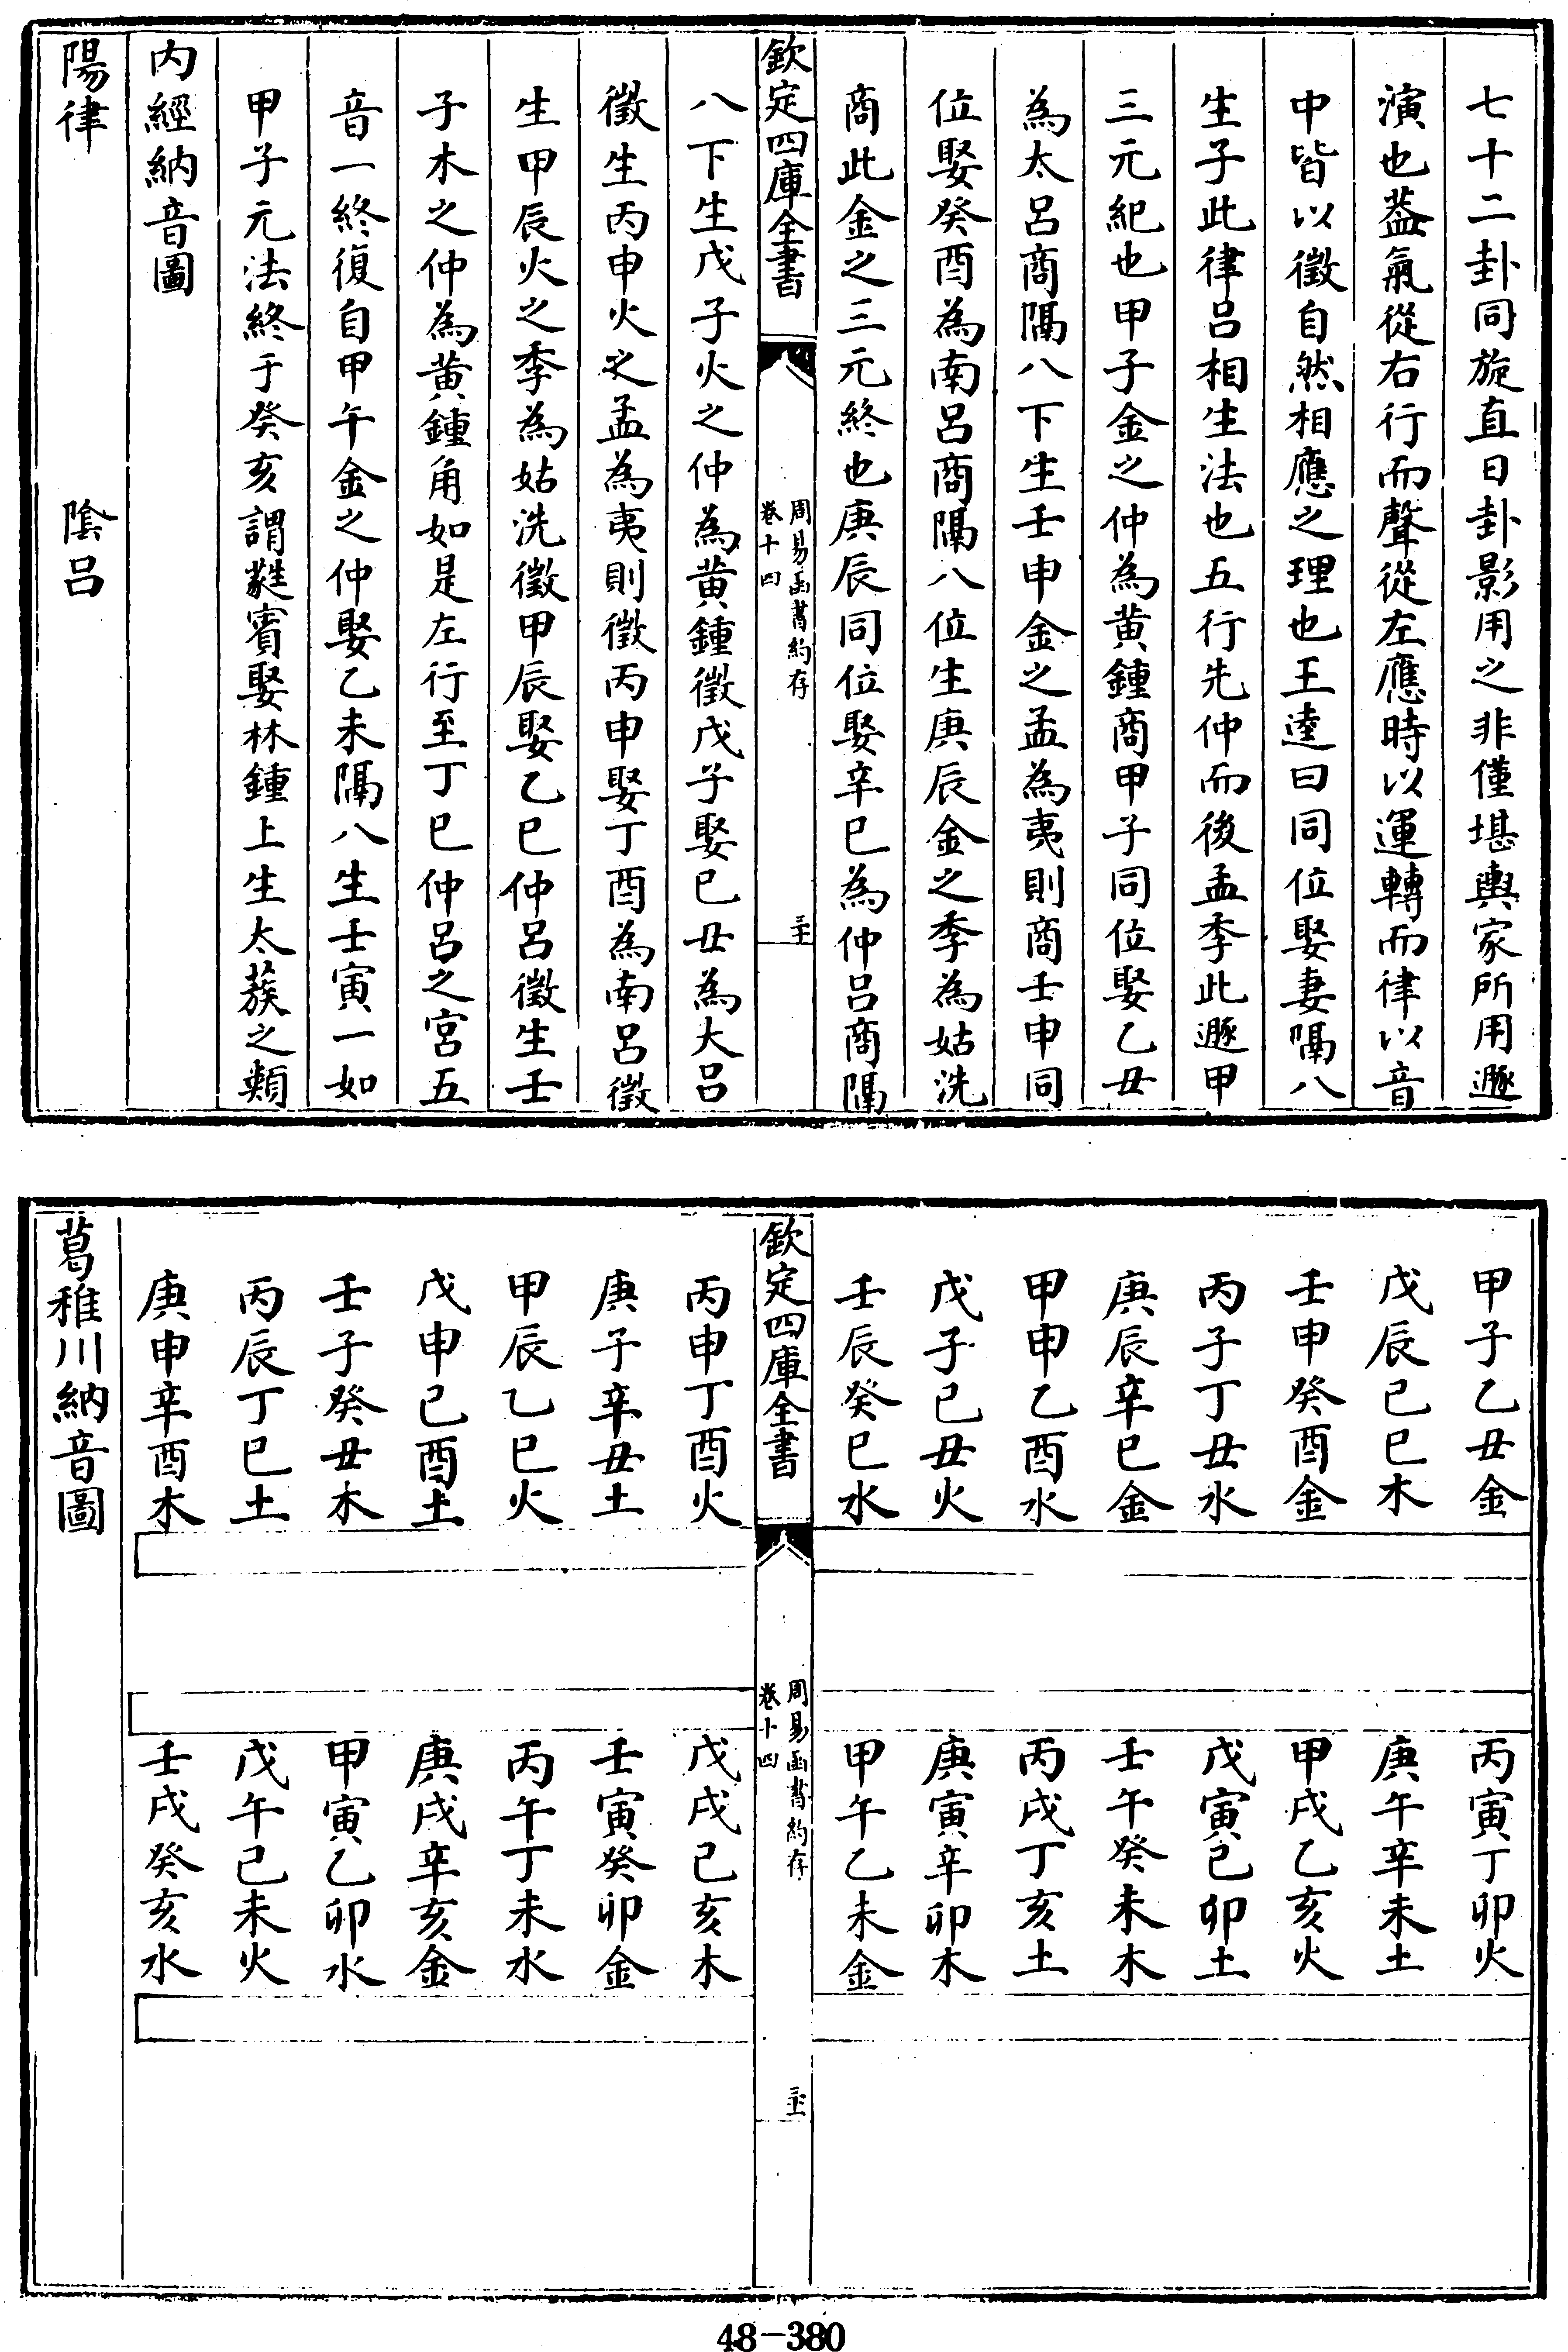 七十二卦同旋直日卦影用之非僅堪輿家所用遯
演也葢氣從右行而聲從左應時以運轉而律以音
中皆以徵自然相應之理也王逵曰同位娶妻隔八
生子此律呂相生法也五行先仲而後孟季此遯甲
三元紀也甲子金之仲為黃鍾商甲子同位娶乙丑
為太呂商隔八下生壬申金之孟為夷則商壬申同
位娶癸酉為南呂商隔八位生庚辰金之季為姑洗
商此金之三元終也庚辰同位娶辛巳為仲呂商隔
欽定四庫全書
周易函書約存
卷十四
三十
八下生戊子火之仲為黃鍾徵戊子娶己丑為大呂
徵生丙申火之孟為夷則徵丙申娶丁酉為南呂徵
生甲辰火之季為姑洗徵甲辰娶乙巳仲呂徵生壬
子木之仲為黃鍾角如是左行至丁巳仲呂之宮五
音一終復自甲午金之仲娶乙未隔八生壬寅一如
甲子元法終于癸亥謂蕤賓娶林鍾上生太蔟之類
內經納音圖
陽律　陰呂
甲子乙丑金
戊辰己巳木
壬申癸酉金
丙子丁丑水
庚辰辛巳金
甲申乙酉水
戊子己丑火
壬辰癸巳水
丙寅丁卯火
庚午辛未土
甲戌乙亥火
戊寅己卯土
壬午癸未木
丙戌丁亥土
庚寅辛卯木
甲午乙未金
欽定四庫全書
周易函書約存
卷十四
三十一
丙申丁酉火
庚子辛丑土
甲辰乙巳火
戊申己酉土
壬子癸丑木
丙辰丁巳土
庚申辛酉木
戊戌己亥木
壬寅癸卯金
丙午丁未水
庚戌辛亥金
甲寅乙卯水
戊午己未火
壬戌癸亥水
葛稚川納音圖
48-380